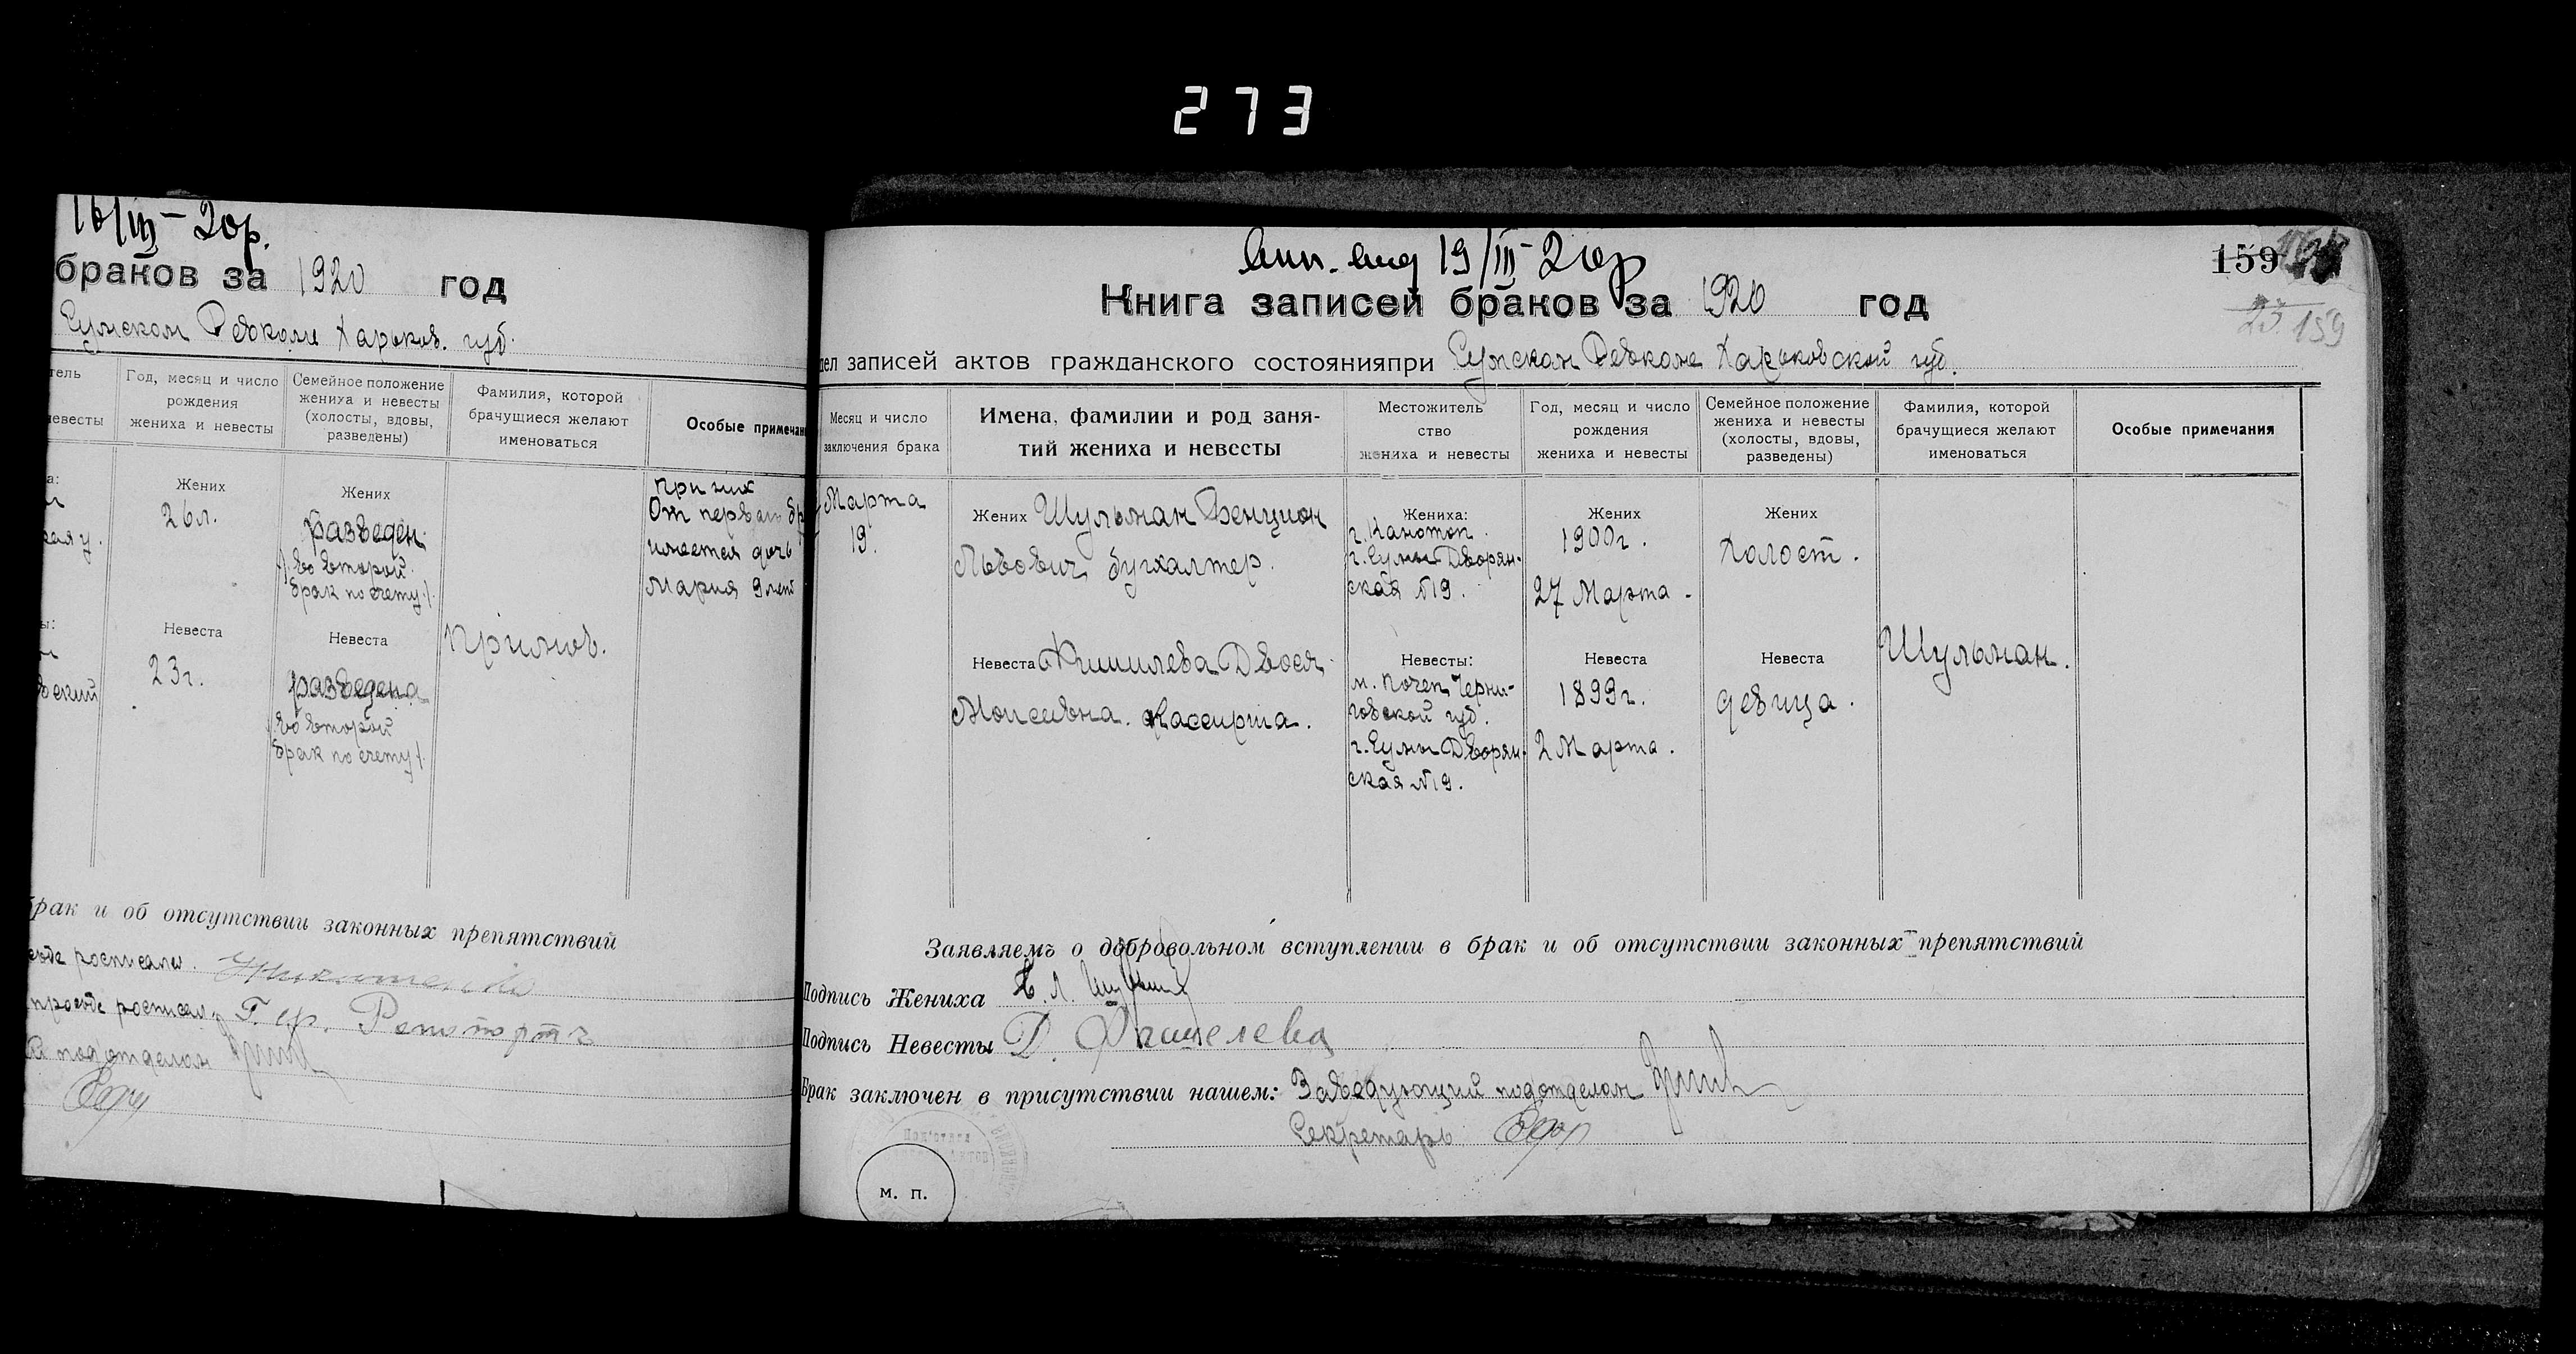 273
16/III-20р.
браков за 1920 год
Сумском Ревкоме Харьков. губ.
Год, месяц и число рождения жениха и невесты
Семейное положение жениха и невесты (холосты, вдовы, разведены)
Фамилия, которой брачущиеся желают именоваться
Особые примечан
Жених
26л.
Жених
разведен.
/.во второй
брак по счету./.
При них
От первого бр
имеется дочь
Мария 9 лет
Невеста
23г.
Невеста
разведена
во второй
брак по счету/.
брак и об отсутствии законных препятствий
просьбе росписал
подотделом
19/III-20р
159
159
Книга записей браков за 1920 год
дел записей актов гражданского состоянияпри Сумском Ревкоме Харьковской губ.
Месяц и число заключения брака
Имена, фамилии и род занятий жениха и невесты
Местожительство жениха и невесты
Год, месяц и число рождения жениха и невесты
Семейное положение жениха и невесты (холосты, вдовы, разведены)
Фамилия, которой брачущиеся желают именоваться
Особые примечания
Марта
19.
Жених Шульман Бенцион
Львович бухгалтер.
Жениха:
г. Канотоп.
г. Сумы Дворян-
ская №19.
Жених
1900г.
27 Марта.
Жених
Холост.
Невеста Фишилева Двося
Моисеевна. Кассирша.
Невесты:
м. Почеп, Черни-
говской губ.
г. Сумы Дворян-
ская №19.
Невеста
1899г.
2 Марта.
Невеста
девица.
Шульман.
Заявляемъ о добровольном вступлении в брак и об отсутствии законных препятствий
Подпись Жениха
Подпись Невесты Д. Фишелева
Брак заключен в присутствии нашем: Заведующий подотделом
Секретарь
м. п.